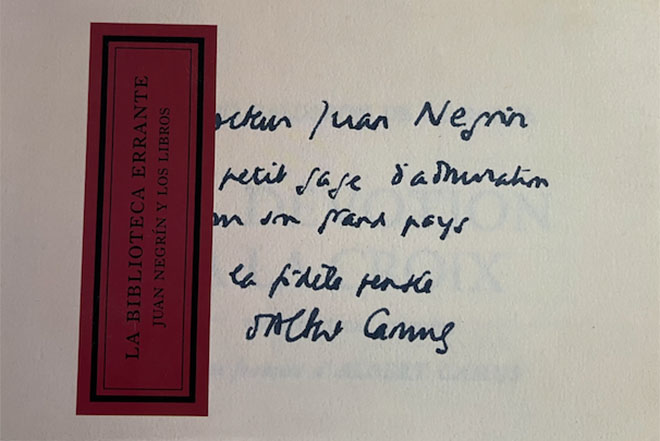 LA BIBLIOTECA ERRANTE
JUAN NEGRÍN Y LOS LIBROS
Juan Negrin
petit gage d'admiration
son grand pays
la fidèle pensée
d'Albert Camus
DEVOTION
LA CROIX
ALBERT CAMUS